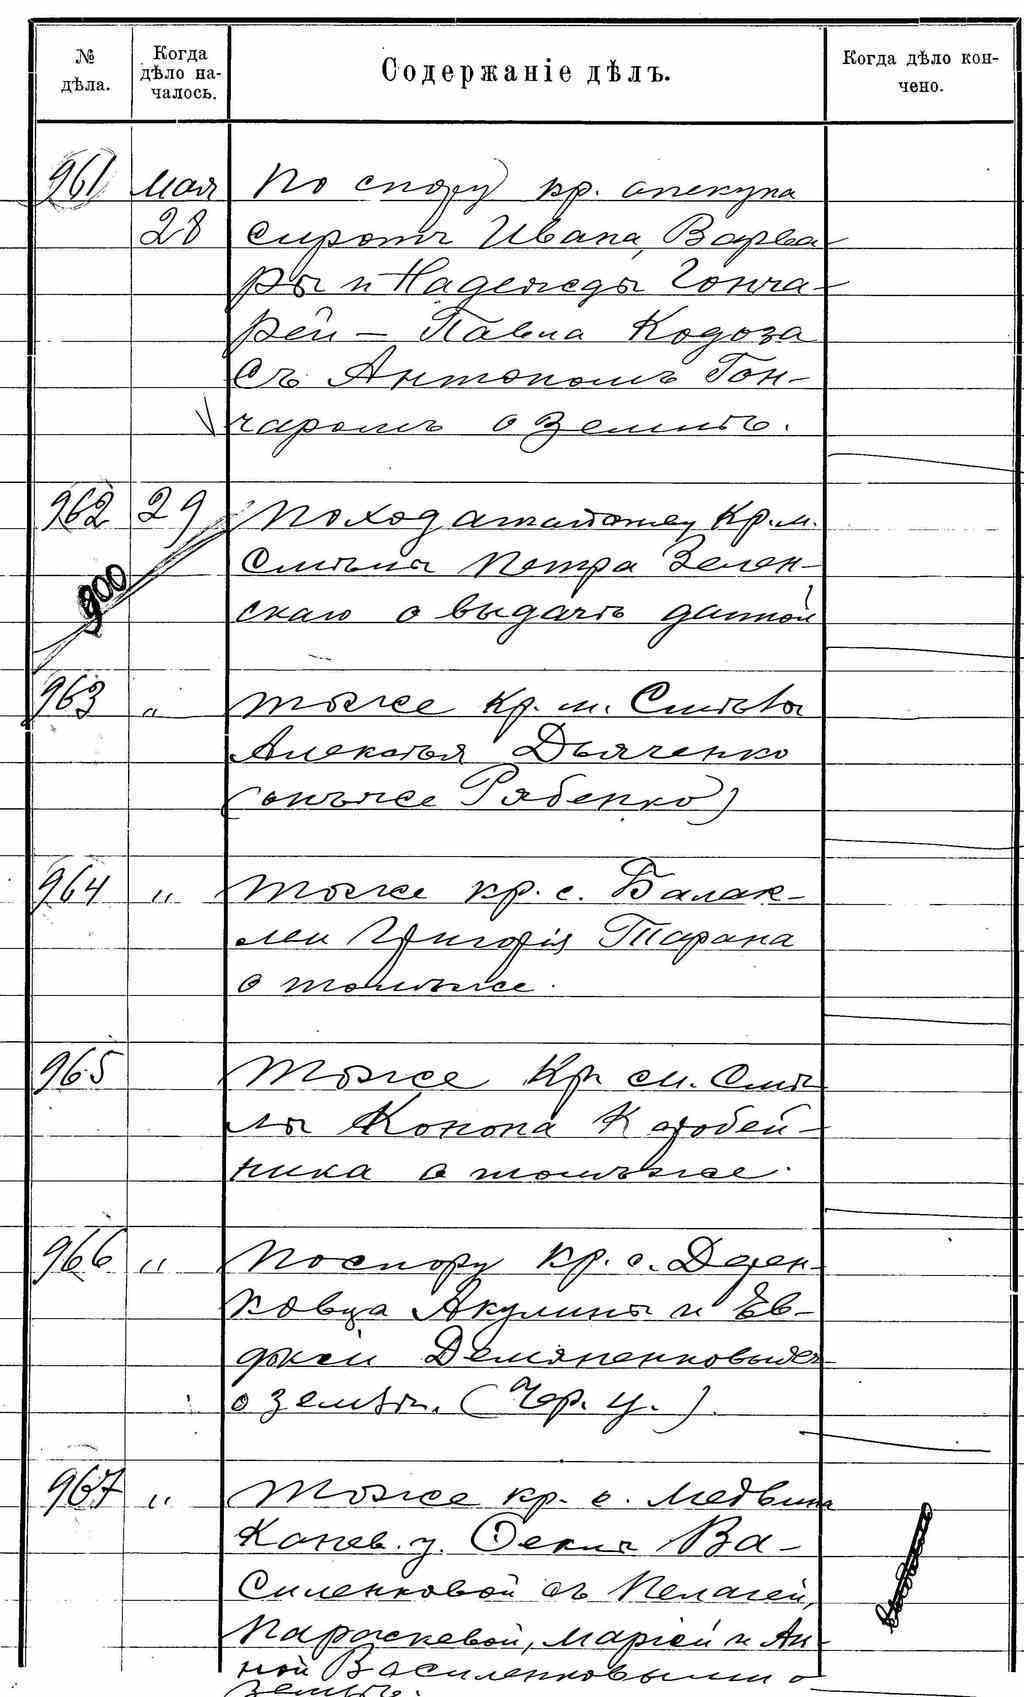 № дѣла.
Когда дѣло на-
чалось.
Содержаніе дѣлъ.
Когда дѣло кон-
чено.
961 Мая По спору кр. опекуна
28 сиротъ Ивана, Варва-
ры и Надежды Гонча-
рей — Павла Кодоза
съ Антономъ Гон-
чаромъ о землѣ.
962 29 По ходатайству кр. м.
Смѣлы Петра Зелен-
скаго о выдачѣ данной
900
963 " тоже кр. м. Смѣлы
Алексѣя Дьяченко
(онъ же Рябенко)
964 " тоже кр. с. Балак-
леи Григорія Тарана
о томъ же.
965 тоже кр. м. Смѣ-
лы Конона Коробей-
ника о томъ же.
966 " По спору кр. с. Дерен-
ковца Акулины и Ев-
докіи Демяненковыхъ
о землѣ. (Чер. у.)
967 " тоже кр. с. Медвина
Канев. у. Ѳеклы Ва-
силенковой съ Пелагеей,
Параскевой, Маріей и Ан-
ной Василенковыми о
землѣ.